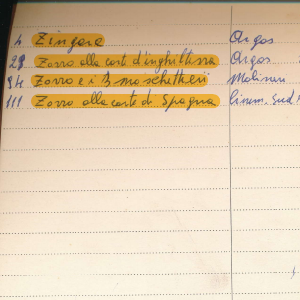 4 Zingare Argos
29 Zorro alla corte d'inghilterra Argos
94 Zorro e i 3 moschettieri Molinari
111 Zorro alla corte di Spagna Cinem. Sud